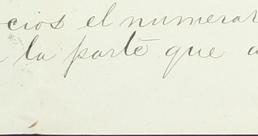 ocios el numerar
la parte que a